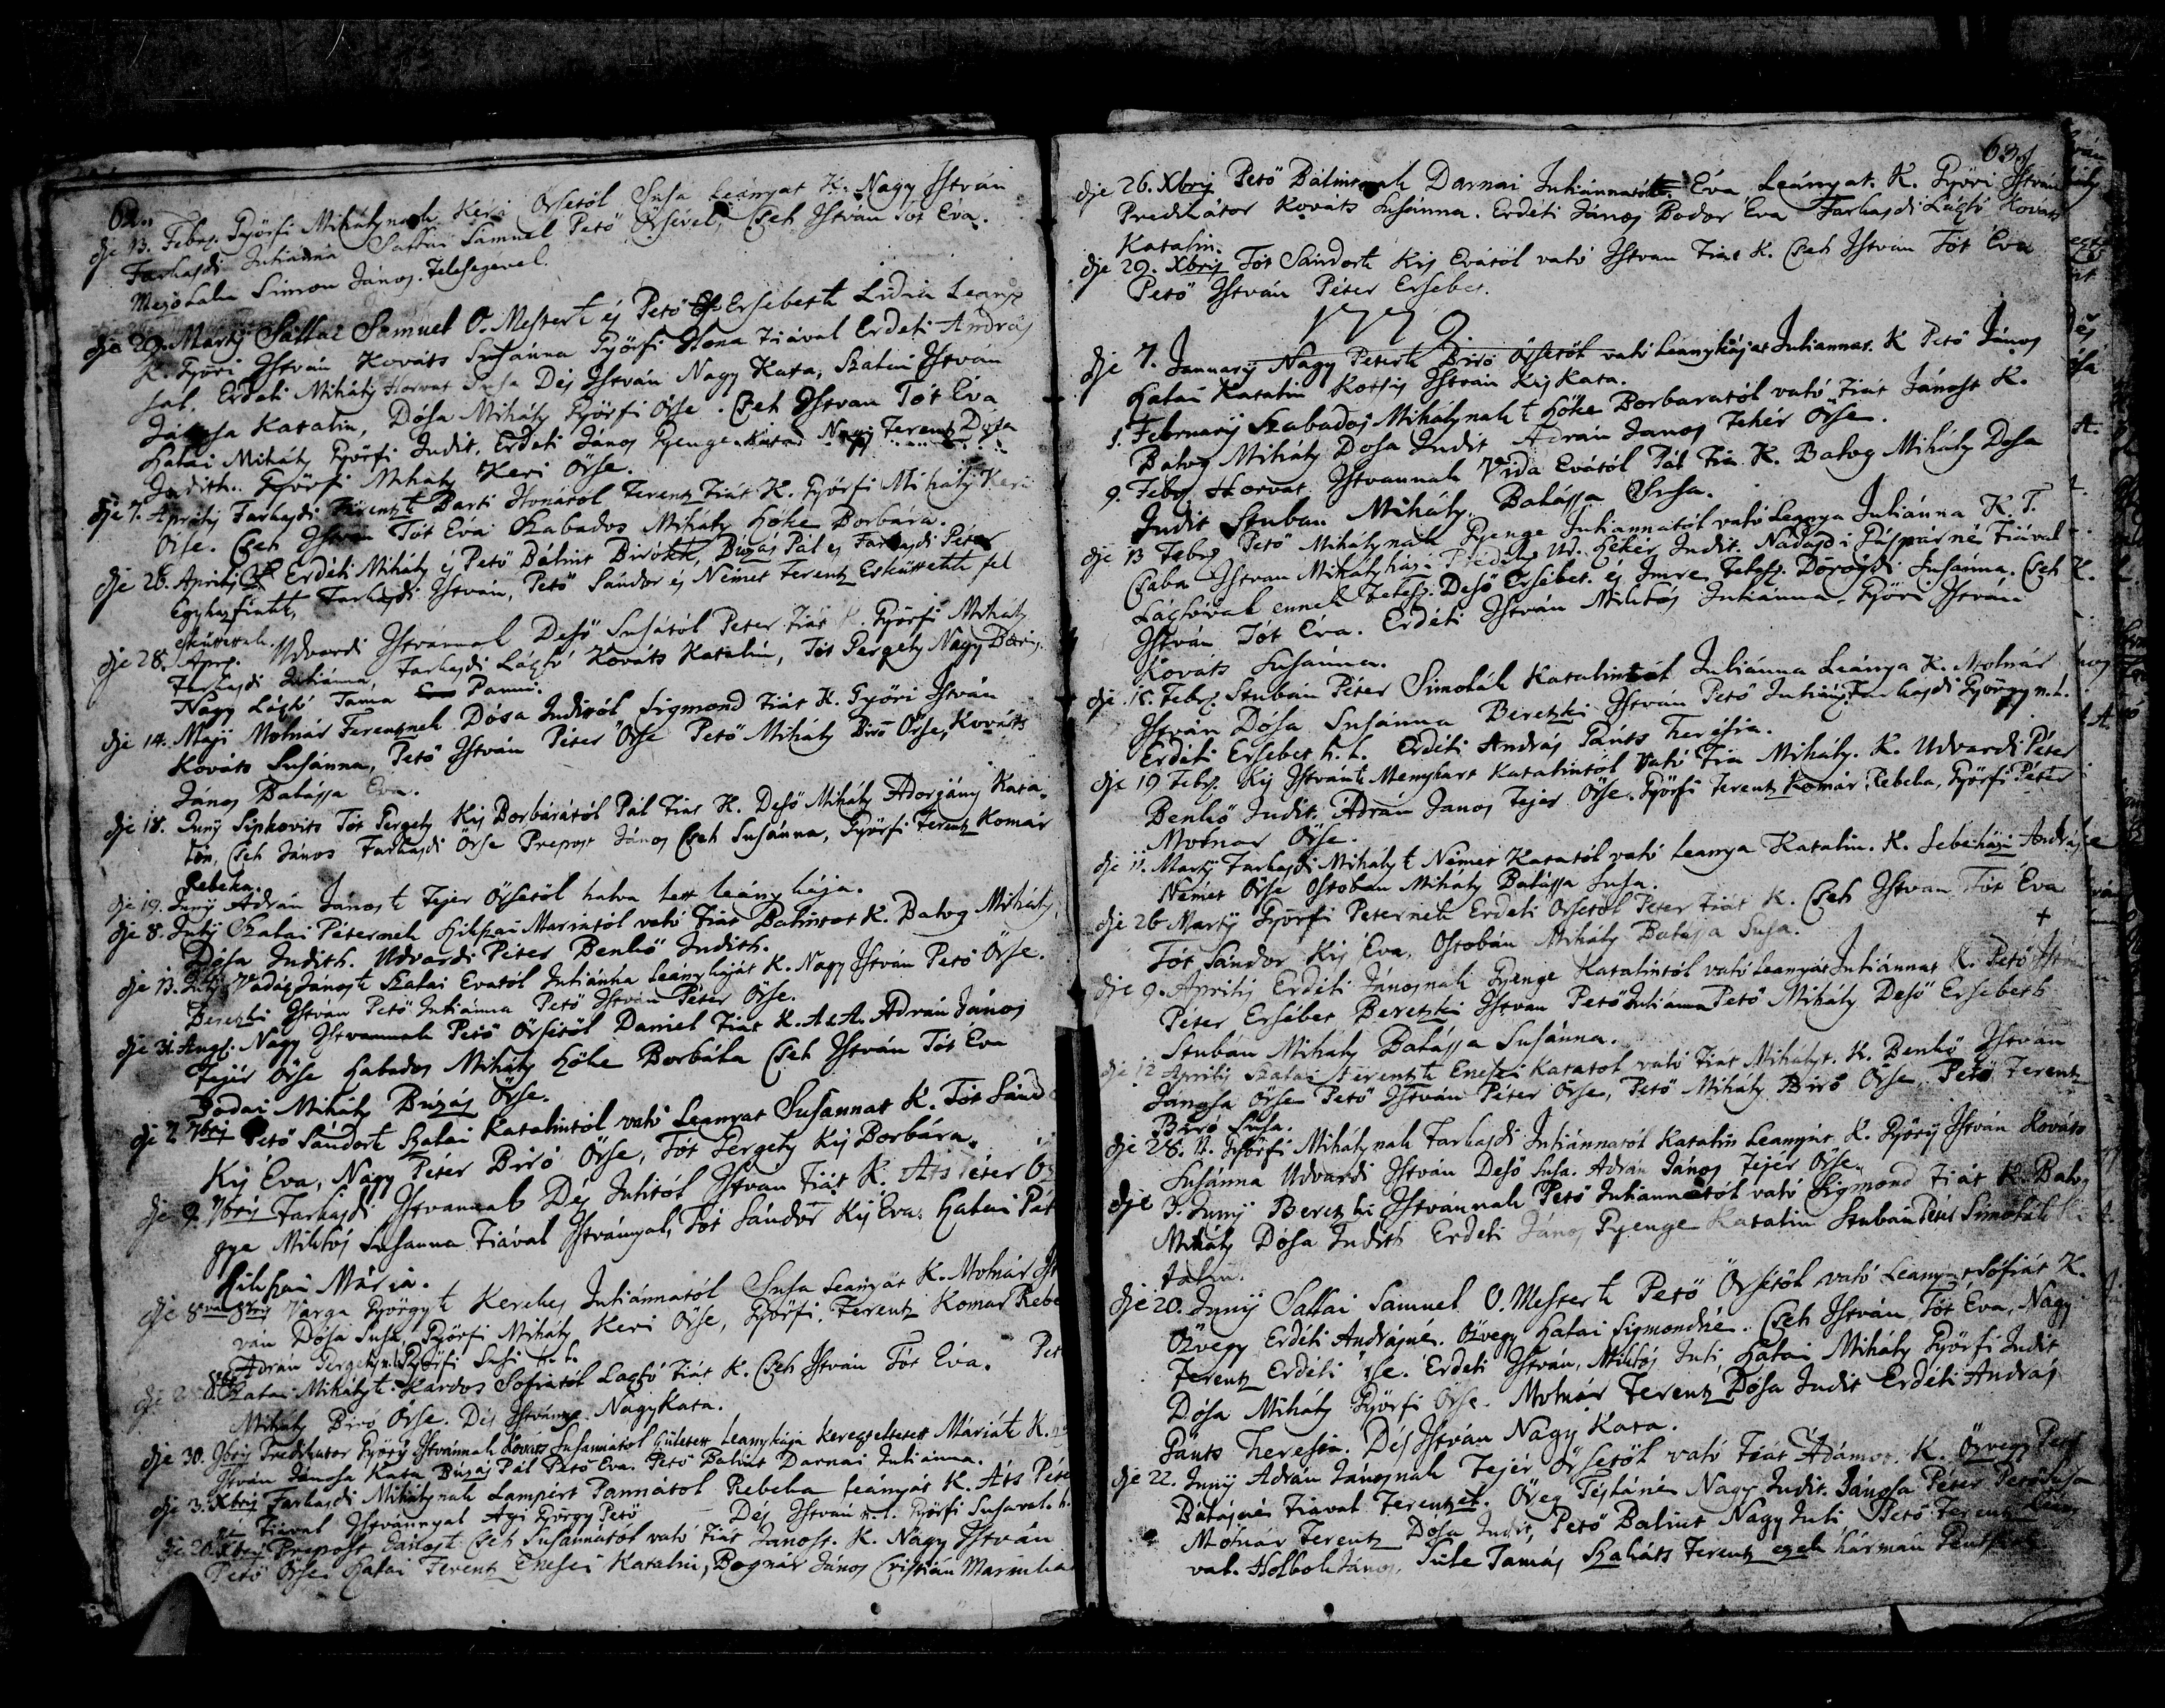 62.
die 13. Febr. Györfi Mihálynak Keri Örsétöl Susa Leányat K. Nagy István
Farkasdi Juliánna Sallai Samuel Petö Örsével, Cseh István Tót Éva.
Simon János. Feleségevel.
die 29. Martij Sallai Samuel O. Mester és Petö Ersebeth Lidia Leany
K. Györi István Kováts Susánna Györfi Ilona Fiával Erdeli András
sal. Erdeli Mihály Horvat Susa Dés István Nagy Kata, Szalai István
Jánosa Katalin, Dósa Mihály Györfi Örse. Cseh Istvan Tót Éva
Halai Mihály Györfi Judit. Erdeli János Gyenge Nagy Ferentz Dósa
Judith. Györfi Mihály Keri Örse.
die 7. Aprilij Farkasdi Ferentz Barti Ilonától Ferentz Fiát K. Györfi Mihály Keri
Örse. Cseh István Tót Éva Szabados Mihály Höke Borbára.
die 26. Aprilij Erdéli Mihály és Petö Bálint Birókk, Búzás Pál es Farkasdi Péter
Egyhasfiakk, Farkasdi István, Petö Sándor és Német Ferentz Esküttekk fel
esküvének.
die 28. Apr. Udvardi Istvánnal Desö Susától Peter Fiát K. Györfi Mihály
Farkasdi Juliánna, Farkasdi László Kováts Katalin, Tót Gergely Nagy Bori.
Nagy László Panni.
die 14. Maji Molnár Ferentznek Dósa Juditól Sigmond Fiát K. Györi István
Kováts Susánna, Petö István Péter Örse Petö Mihály Biró Örse, Kováts
János Balássa Éva.
die 18. Junij Sipkovits Tót Gergely Kis Borbárától Pál Fiát K. Desö Mihály Adorjány Kata,
lin, Cseh János Farkasdi Örse Prepost János Cseh Susánna, Györfi Ferentz Komár
Rebeka.
die 19. Junij Adrán Jánosk Fejer Örsétöl halva lett leánykája.
die 8. Julij Szalai Péternek Hikpai Mariától való Fiát Bálintot K. Balog Mihály,
Dósa Judith. Udvardi Péter Benkö Judith.
die 13. Julij Vadász Jánosk Szalai Evatól Juliánna leánykáját K. Nagy István Petö Örse.
Beretzki István Petö Juliánna Petö István Péter Örse.
die 31. Aug. Nagy Istvannak Petö Örsétöl Daniel Fiát K. A. A. Adrán János
Fejér Örse Habados Mihály Höke Borbála Cseh István Tót Éva
Bodai Mihály Búzás Örse.
die 2. 7brij Petö Sándork Szalai Katalintól való Leanyat Susannat K. Tót Sánd
Kis Éva, Nagy Péter Biró Örse, Tót Gergely Kis Borbára.
die 9. 7brij Farkasdi Istvannak Dés Julitól István Fiát K. Áts Péter Öz
gye Miklós Susanna Fiával Istvánnal, Tót Sándor Kis Éva. Halai Pét
Hikpai Mária.
die 8val 8brij Varga Györgyk Kerekes Juliánnatól Susa Leányát K. Molnár Ist
ván Dósa Susa, Györfi Mihály Keri Örse, Györfi Ferentz Komár Rebe
Adrán Gergely n.l. Györfi Susi h.l.
Szalai Mihályk Kardos Sofiától László Fiát K. Cseh István Tót Éva. Pet
Mihály Biró Örse. Dés István Nagy Kata.
die 30. 9brij Predikator Györy Istvánnak Kováts Susannától született Leánykája kereszteltetett Máriák K.
István Jánosa Kata Búzás Pál Petö Éva. Petö Bálint Darnai Julianna.
die 3. Xbrij Farkasdi Mihálynak Lampert Pannától Rebeka leányát K. Áts Péte
Fiával Istvánnyal Agi György Petö Dés István n.l. Györfi Susával h.
die 26. Xbrij Prepost Jánosk Cseh Susannától való Fiát Jánost. K. Nagy István
Petö Örse Halai Ferentz Enesei Katalin, Bognár János Cristián Marinka
63.
die 26. Xbrij Petö Bálintnak Darnai Juliánnától Éva Leányat. K. Györi István
Predikátor Kováts Susánna. Erdéli János Bodor Éva Farkasdi László Kováts
Katalin.
die 29. Xbrij Tót Sándork Kis Evától való Istvan Fiát K. Cseh István Tót Éva
Petö István Péter Ersebet.
1772
die 7. Januarij Nagy Peterk Biró Örsétöl való Leánykáját Juliannat. K Petö János
Halai Katalin Kossis István Kis Kata.
1. Februarij Szabados Mihálynak Höke Borbaratól való Fiát Jánost K.
Balog Mihály Dosa Judit Adrán Janos Fehér Örse.
9. Febr. Horvat Istvannak Vida Evától Pál Fia K. Balog Mihály Dosa
Judit Szuban Mihály, Balássa Susa.
die 13 Febr. Petö Mihálynak Gyenge Juliannatól való Leanya Juliánna K. T.
Csaba Istvan Mihályházi Predik. Ur. Hekér Judit. Nádasdi Gáspárné Fiával
Lászlóval ennek Feles. Desö Ersébet. és Imre Feles. Dorogdi Susánna. Cseh
István Tót Éva. Erdéli István Miklós Juliánna. Györi István
Kováts Susánna.
die 18. Febr. Szubán Péter Simolák Katalintól Juliánna Leánya K. Molnár
István Dósa Susánna Beretzki István Petö Juliánna Farkasdi György n.l.
Erdéli Ersebet h.l. Erdéli András Gánts Therésia.
die 19 Febr. Kis Istvánk Menyhart Katalintól Való Fia Mihály. K. Udvardi Péter
Benkö Judit. Adrán Janos Fejer Örse. Györfi Ferentz Komár Rebeka, Györfi Péter
Molnar Örse.
die 11. Martij Farkasdi Mihályk Német Katatól való Leanya Katalin. K. Sebeházi András
Német Örse Ostobán Mihály Balássa Susa.
die 26 Martij Györfi Peternek Erdeli Örsétöl Peter Fiát K. Cseh Istvan Tót Éva
Tót Sándor Kis Éva, Ostobán Mihály Balássa Susa.
die 9. Aprilis Erdéli Jánosnak Gyenge Katalintól való Leanyát Juliánnat K. Petö István
Péter Ersébet Beretzki Istvan Petö Juliánna Petö Mihály Desö Ersebeth
Szubán Mihály Balássa Susánna.
die 12 Aprilij Szalai Ferentzk Enesei Katatol való Fiát Mihályt. K. Benkö István
Jánosa Örse Petö István Péter Örse, Petö Mihály Biró Örse Petö Ferentz
Biró Susa.
die 28. Györfi Mihálynak Farkasdi Juliánnától Katalin Leanyát K. Györij István Kováts
Susánna Udvardi István Desö Susa. Adrán János Fejér Örse.
die 3. Junij Beretzki Istvánnak Petö Juliannától való Sigmond Fiát K. Balog
Mihály Dósa Judith Erdeli János Gyenge Katalin Szubán Péter Simolák
talin.
die 20. Junij Sallai Samuel O. Mesterk Petö Örsétöl való Leanyát Sófiát K.
Özvegy Erdéli Andrásné. Özvegy Halai Sigmondné. Cseh István Tót Éva, Nagy
Ferentz Erdéli Örse. Erdeli István, Miklós Juli Halai Mihály Györfi Judit
Dósa Mihály Györfi Örse. Molnár Ferentz Dósa Judit Erdéli András
Gánts Theresia. Dés István Nagy Kata.
die 22. Junij Adrán Jánosnak Fejér Örsétöl való Fiát Ádámot. K. Özvegy Petö
Balásné Fiával Ferentzel. Öreg Nagy Judit. Jánosa Péter Petö Susa
Molnár Ferentz Dósa Judit, Petö Bálint Nagy Juli Petö Ferentz
val. Holbok János, Süle Tamás Szakáts Ferentz ezek hárman